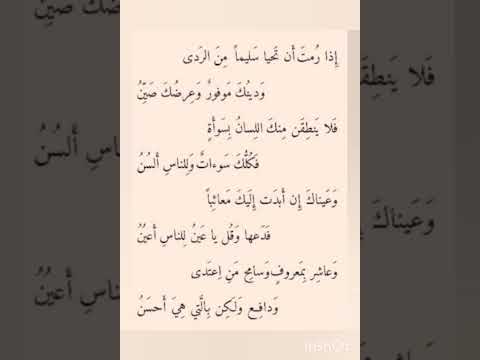 إِذا رُمتَ أَن تَحيا سَليماً مِنَ الرَدى
وَدينُكَ مَوفورٌ وَعِرضُكَ صَيِّنُ
فَلا يَنطِقَن مِنكَ اللِسانُ بِسَوأَةٍ
فَكُلُّكَ سَوءاتٌ وَلِلناسِ أَلسُنُ
وَعَيناكَ إِن أَبدَت إِلَيكَ مَعائِباً
فَدَعها وَقُل يا عَينُ لِلناسِ أَعيُنُ
وَعاشِر بِمَعروفٍ وَسامِح مَنِ اِعتَدى
وَدافِع وَلَكِن بِالَّتي هِيَ أَحسَنُ